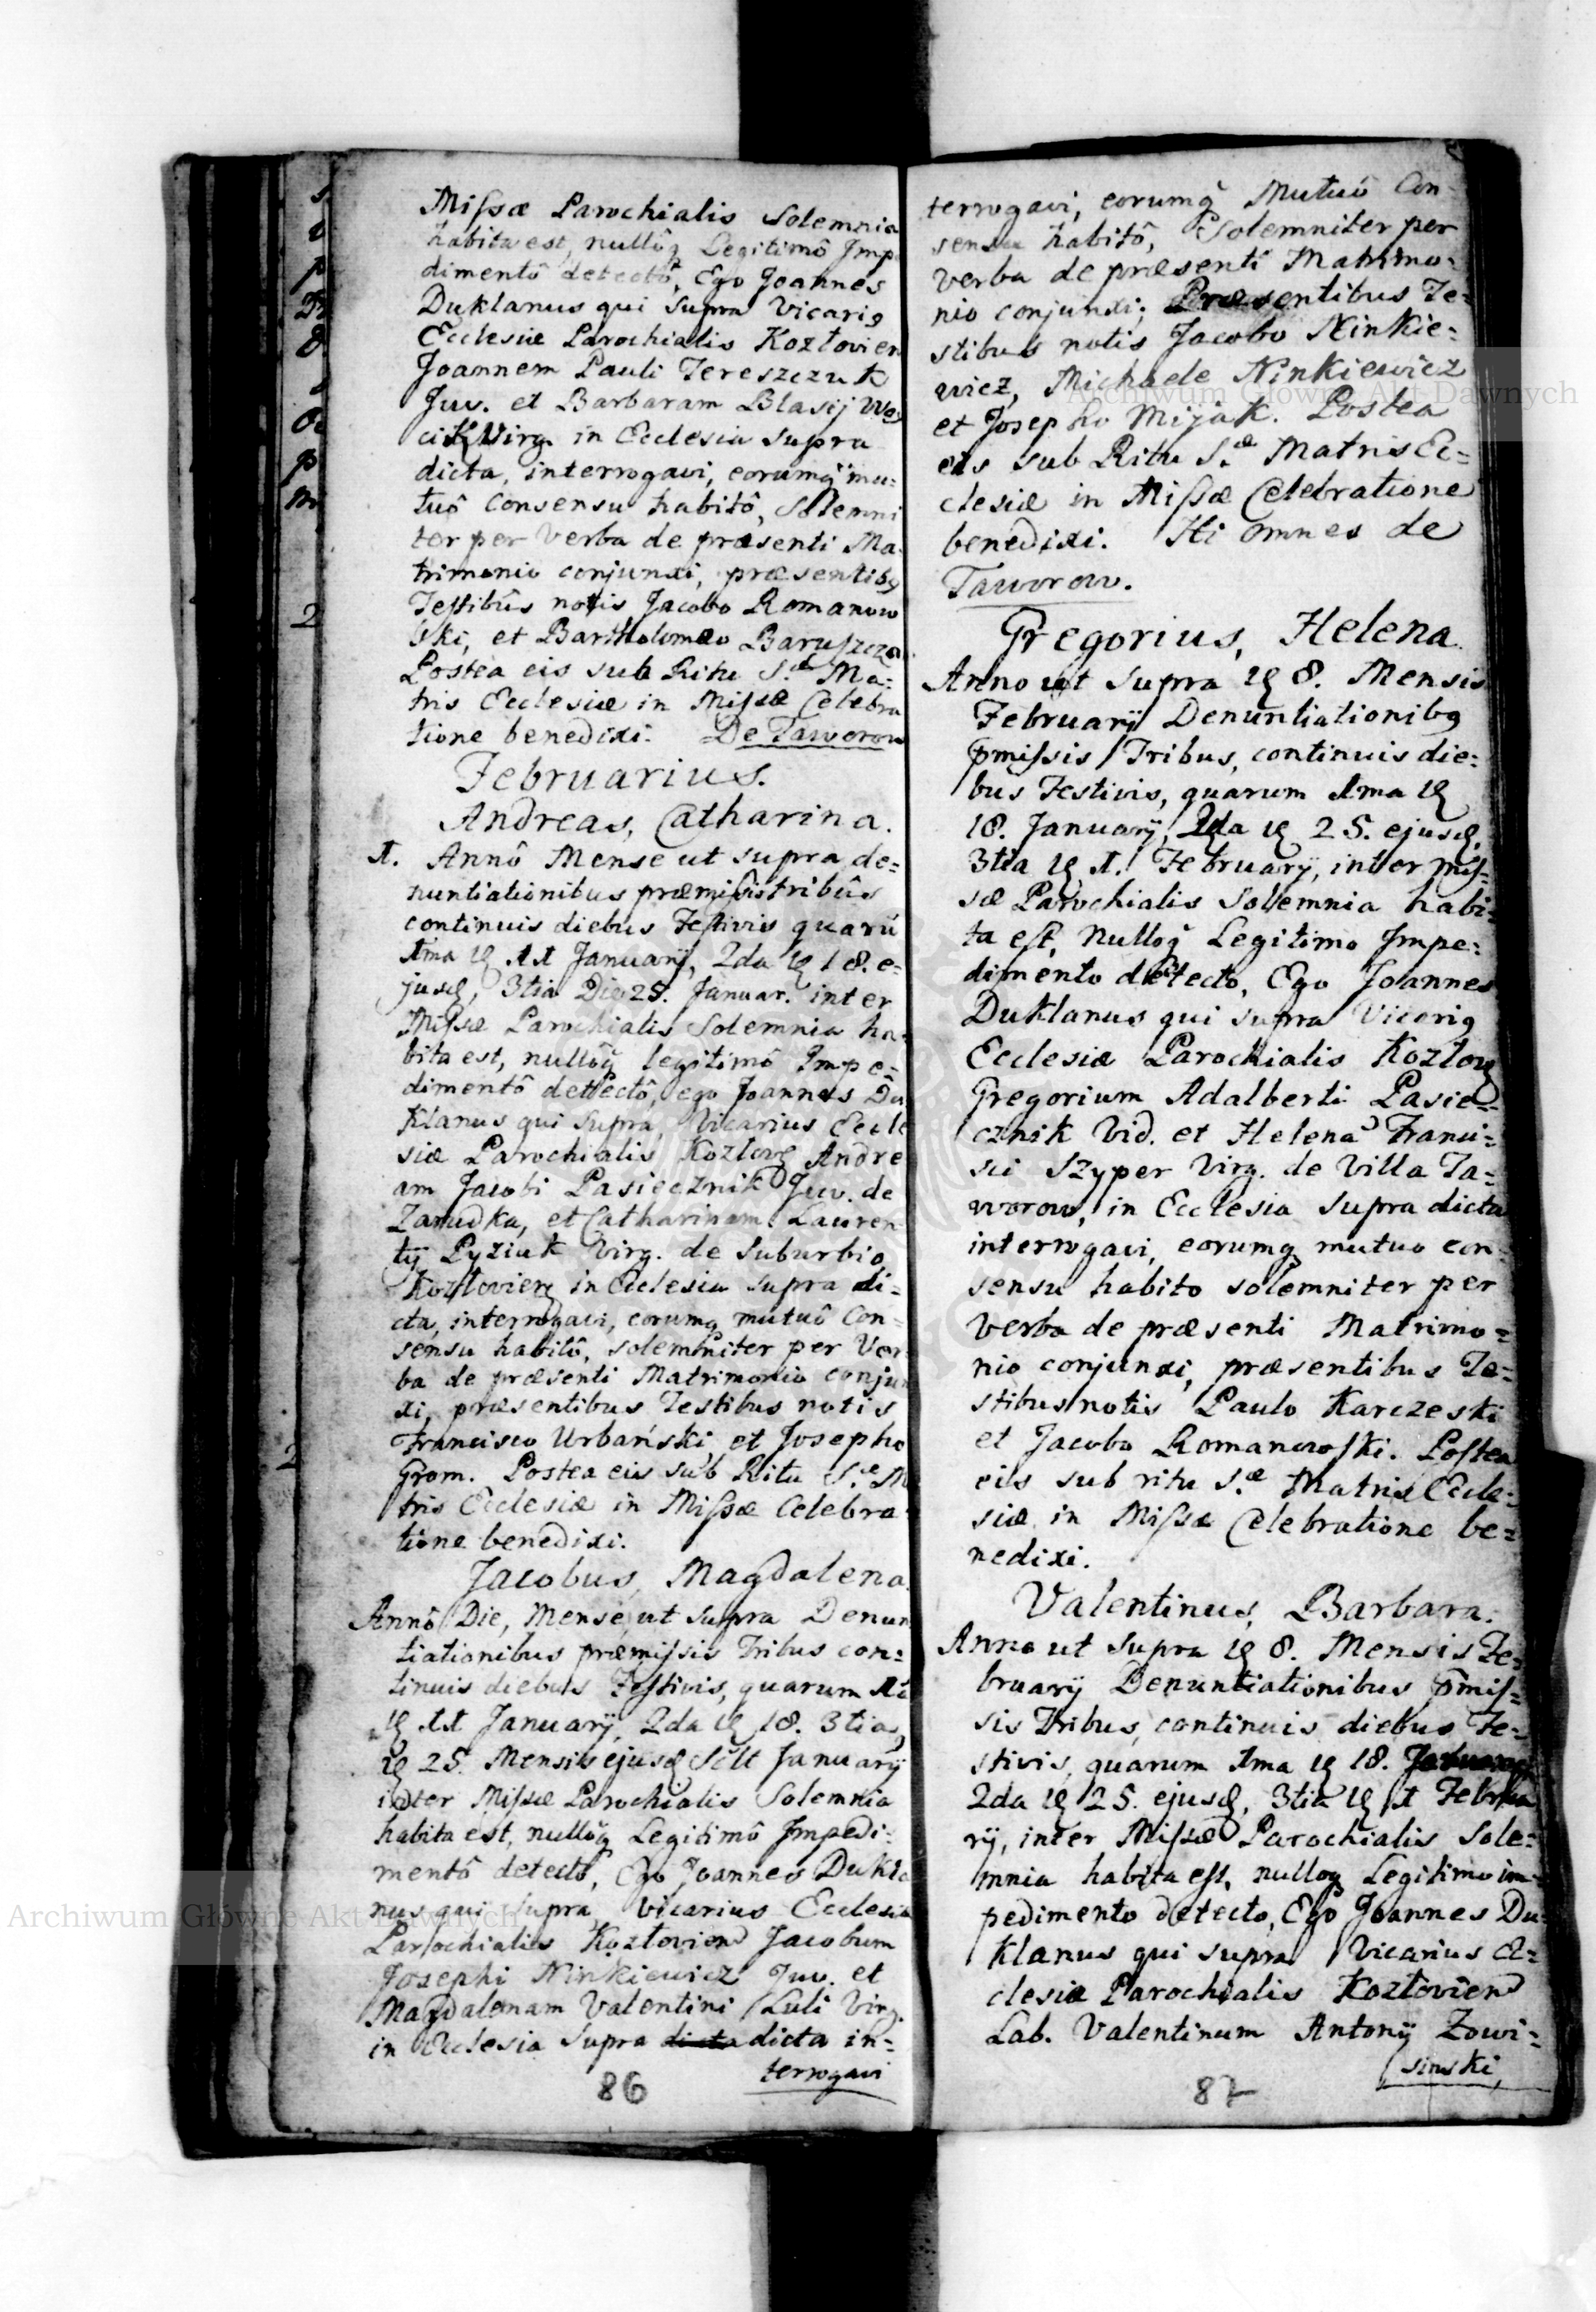 Missæ Parochialis Solemnia
habita est, nullôq Legitimô Imp
dimentô detectô, Ego Joannes
Duklanus qui Supra Vicariq
Ecclesiæ Parochialis Kozłovien
Joannem Pauli Tereszczuk
Juv. et Barbaram Blasij
Virg. in Ecclesia supra
dicta, interrogavi, eorumq mu=
tuô Consensu habitô, Solemni
ter per Verba de præsenti Ma
trimonio conjunxi, præsentibq
Testibûs notis Jacobo Romanow
ski, et Bartholomæo Baruszcza
Postea eis sub Ritu S.æ Ma=
tris Ecclesiæ in Missæ Celebra
tione benedixi. De Taworow
Februarius.
Andreas, Catharina.
1. Annô Mense ut supra de=
nuntiationibus præmissis tribûs
continuis diebus Festivis quarũ
1ma 11 Januarij, 2da 18. e=
jusd, 3tia Die 25. Januar. inter
Missæ Parochialis Solemnia ha=
bita est, nullôq legitimô Impe=
dimentô detectô, ego Joannes Du
Klanus qui Supra, Vicarius Eccle
siæ Parochialis Kozłov Andre
am Jacobi Pasiecznik Juv. de
Zarudka, et Catharinam Lauren
tij Pyziuk Virg. de Suburbio
Kozłovien in Ecclesia supra di=
cta, interrogavi, eorumq mutuô Con=
sensu habitô, solemniter per Ver
ba de præsenti Matrimonio conjun
xi, præsentibus Testibus notis
Francisco Urbański, et Josepho
Grom. Postea eis sub Ritu S.æ M
tris Ecclesiæ in Missæ Celebra
tione benedixi.
Jacobus, Magdalena.
Annô Die, Mense, ut supra Denun
tiationibus præmissis Tribus con=
tinuis diebus Festivis, quarum
11 Januarij, 2da 18. 3tia
25. Mensis ejusd Scilt Januarij
inter Missæ Parochialis Solemnia
habita est, nullôq Legitimô Impedi=
mentô detectô, Ego Joannes Dukla
nus qui supra, Vicarius Ecclesiæ
Parochialis Kozłovien Jacobum
Josephi Ninkiewicz Juv. et
Magdalenam Valentini Luli Virg.
in Ecclesia Supra dicta dicta in=
terrogavi
86
terrogavi, eorumq Mutuô Con
sensu habitô, Solemniter per
verba de præsenti Matrimo=
nio conjunxi; Præsentibus Te=
stibus notis Jacobo Ninkie=
wicz, Michaele Ninkiewicz
et Josepho Mijak. Postea
eis sub Ritu S.æ Matris Ec=
clesiæ in Missæ Celebratione
benedixi. Hi omnes de
Taworow.
Gregorius, Helena
Anno ut Supra 8. Mensis
Februarij Denuntiationibq
pmissis Tribus, continuis die=
bus Festivis, quarum 1ma
18. Januarij, 2da 25. ejusd,
3tia 1. Februarij, inter Mis=
sæ Parochialis Solemnia habi=
ta est, Nulloq Legitimo Impe=
dimento detecto, Ego Joannes
Duklanus qui supra Vicariq
Ecclesiæ Parochialis Kozłov
Gregorium Adalberti Pasie=
cznik Vid. et Helena Franci=
sci Szyper Virg. de Villa Ta=
worow, in Ecclesia Supra dicta
interrogavi, eorumq mutuo con=
sensu habito solemniter per
Verba de præsenti Matrimo=
nio conjunxi, præsentibus Te=
stibus notis Paulo Karczeski
et Jacobo Romanowski. Postea
eis sub ritu S.æ Matris Eccle=
siæ in Missæ Celebratione be=
nedixi.
Valentinus, Barbara.
Anno ut Supra 8. Mensis Fe=
bruarij Denuntiationibus pmis=
sis Tribus, continuis diebus Fe=
stivis, quarum 1ma 18. Januarij
2da 25. ejusd, 3tia 1 Februa
rij, inter Missæ Parochialis Sole=
mnia habita est, nulloq Legitimo im=
pedimento detecto, Ego Joannes Du=
klanus qui supra Vicarius Ec=
clesiæ Parochialis Kozłovien
Lab. Valentinum Antonij Zowi=
sinski,
87
Archiwum Główne Akt Dawnych
Archiwum Główne Akt Dawnych